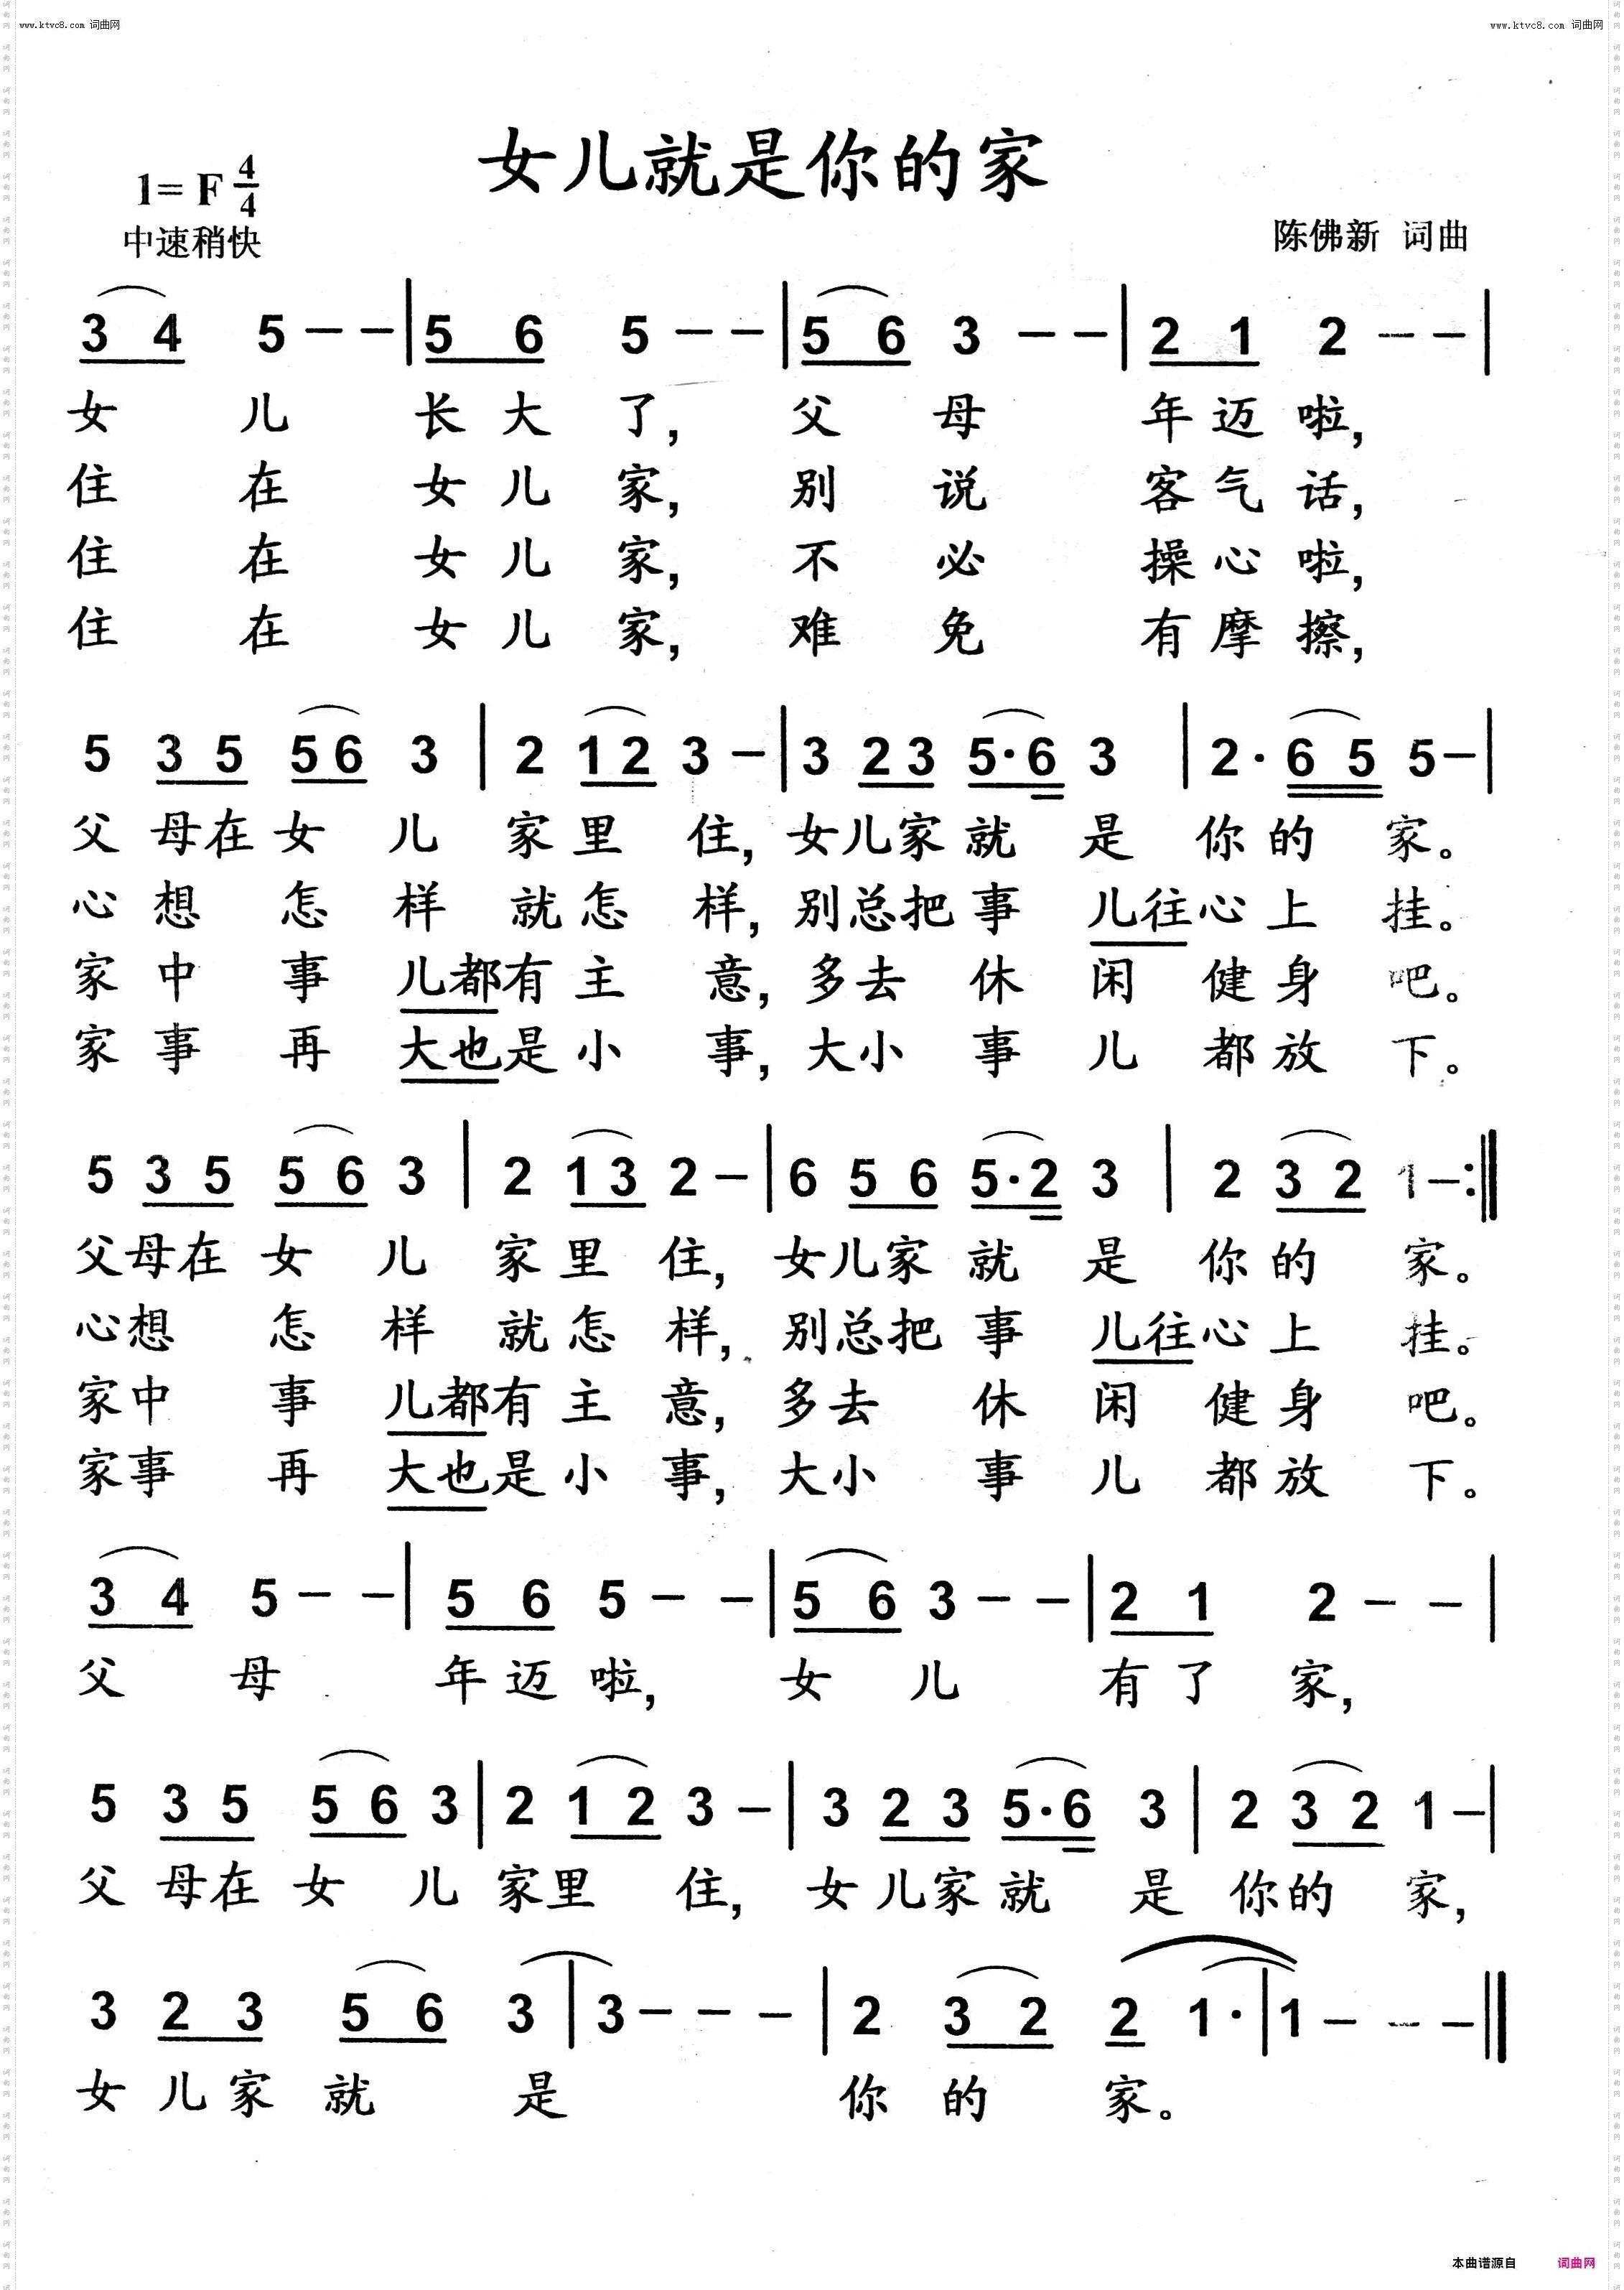 www.ktvc8.com 词曲网 www.ktvc8.com 词曲网
女儿就是你的家
1= F 4/4
中速稍快
陈佛新 词曲
3 4 5 — — | 5 6 5 — — | 5 6 3 — — | 2 1 2 — — |
女 儿 长 大 了, 父 母 年 迈 啦,
住 在 女 儿 家, 别 说 客 气 话,
住 在 女 儿 家, 不 必 操 心 啦,
住 在 女 儿 家, 难 免 有 摩 擦,
5 3 5 5 6 3 | 2 1 2 3 — | 3 2 3 5· 6 3 | 2· 6 5 5 — |
父 母 在 女 儿 家 里 住, 女 儿 家 就 是 你 的 家。
心 想 怎 样 就 怎 样, 别 总 把 事 儿 往 心 上 挂。
家 中 事 儿 都 有 主 意, 多 去 休 闲 健 身 吧。
家 事 再 大 也 是 小 事, 大 小 事 儿 都 放 下。
5 3 5 5 6 3 | 2 1 3 2 — | 6 5 6 5· 2 3 | 2 3 2 1 — :‖
父 母 在 女 儿 家 里 住, 女 儿 家 就 是 你 的 家。
心 想 怎 样 就 怎 样, 别 总 把 事 儿 往 心 上 挂。
家 中 事 儿 都 有 主 意, 多 去 休 闲 健 身 吧。
家 事 再 大 也 是 小 事, 大 小 事 儿 都 放 下。
3 4 5 — — | 5 6 5 — — | 5 6 3 — — | 2 1 2 — — |
父 母 年 迈 啦, 女 儿 有 了 家,
5 3 5 5 6 3 | 2 1 2 3 — | 3 2 3 5· 6 3 | 2 3 2 1 — |
父 母 在 女 儿 家 里 住, 女 儿 家 就 是 你 的 家,
3 2 3 5 6 3 | 3 — — — | 2 3 2 2 1· | 1 — — — ‖
女 儿 家 就 是 你 的 家。
本曲谱源自 词曲网